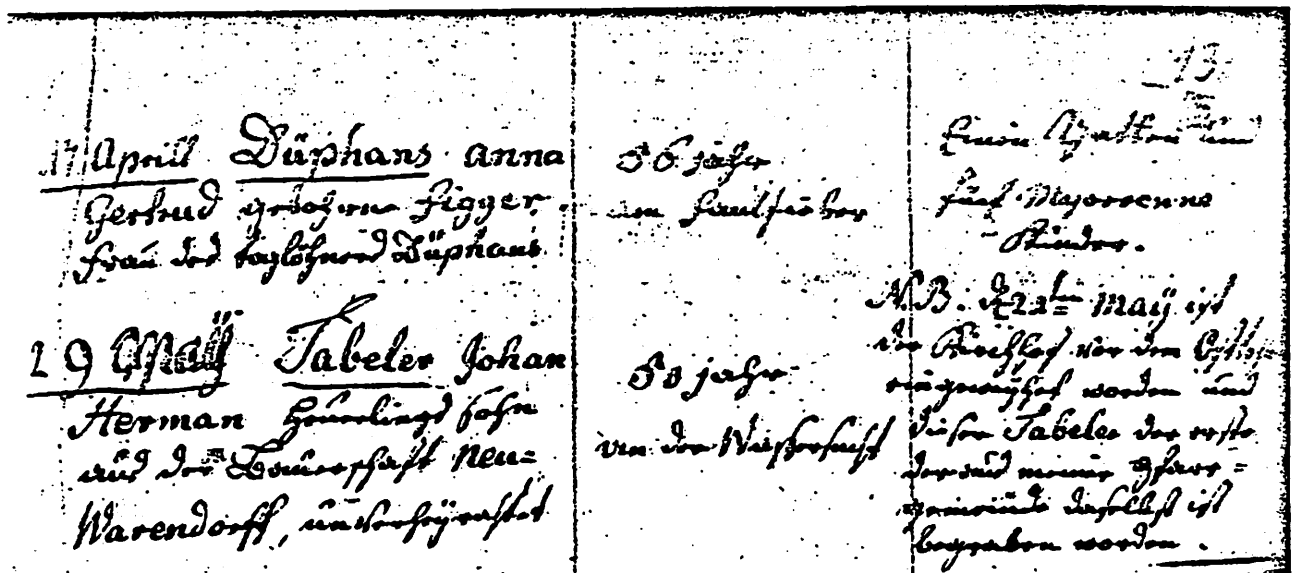 13
17 Aprill Düphans anna
Gertrud gebohrne Figger.
frau des taglöhners Düphans
56 jahr
am faulfieber
Einen Gatten und
fünf Majorenne
Kinder.
29 Maÿ Tabeler Johan
Herman Heuerlings sohn
aus der Bauerschaft Neu=
Warendorff, unverheÿrahtet
50 jahr
an der Waßersucht
N.B. d 22ten Maÿ ist
der Kirchhof vor dem
eingeweÿhet worden und
dieser Tabeler der erste
der aus meiner Pfarr=
gemeinde daselbst ist
begraben worden.